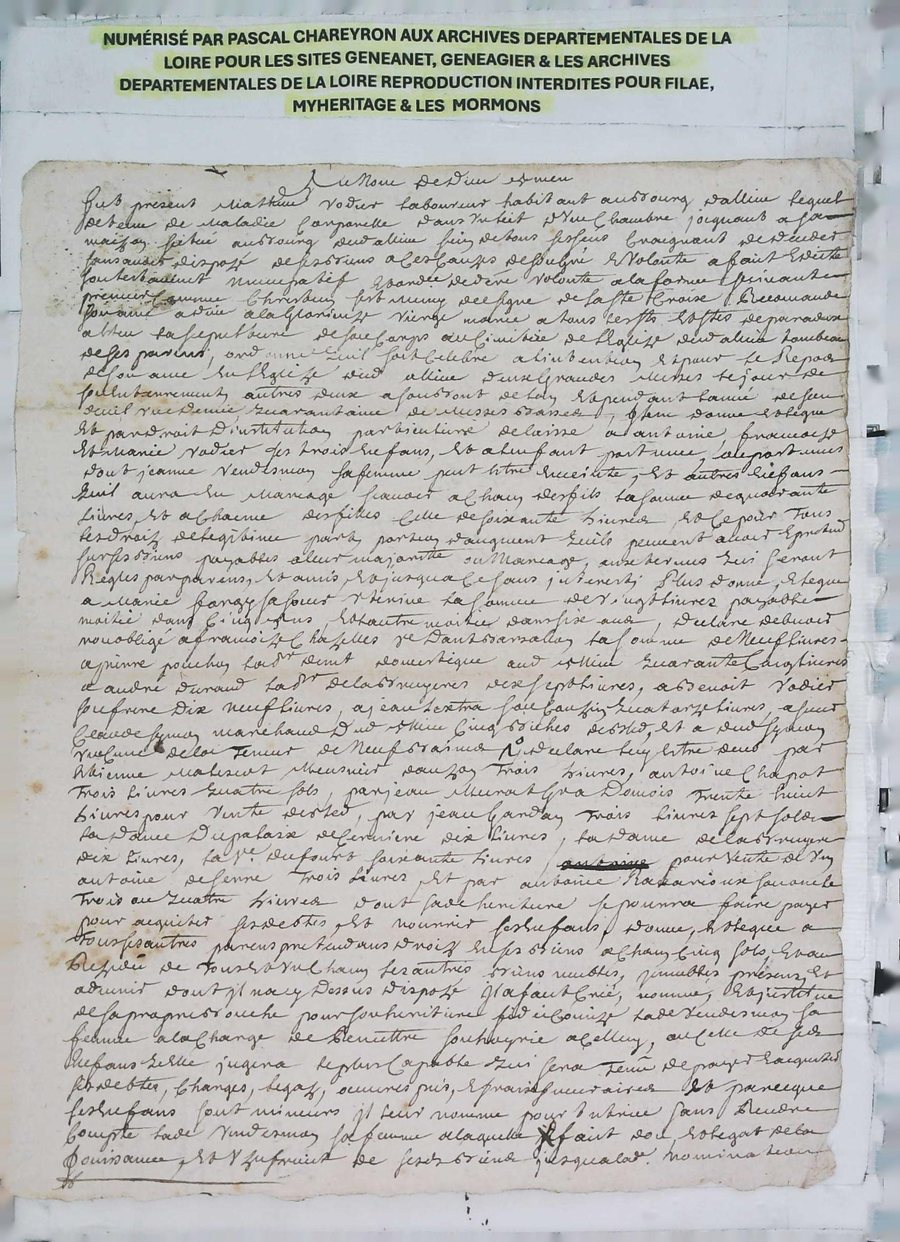 NUMÉRISÉ PAR PASCAL CHAREYRON AUX ARCHIVES DEPARTEMENTALES DE LA
LOIRE POUR LES SITES GENEANET, GENEAGIER & LES ARCHIVES
DEPARTEMENTALES DE LA LOIRE REPRODUCTION INTERDITES POUR FILAE,
MYHERITAGE & LES MORMONS
Au Nom de Dieu amen
fut présent Mathieu Vodier laboureur habitant au bourg dallieu lequel
detenu de Maladie Corporelle dans un lit dune Chambre joignant a sa
maison scitué au bourg dud allieu sein de tous ses sens Craignant de deceder
sans avoir disposé de ses biens a Ces Causes de son gré et Volonté a fait et dicté
son testament nuncupatif et ordre de dere Volonté a la forme suivante
premier Comme Chretien sest muny du signe de la ste Croix Recomandé
son ame a dieu a la Glorieuse Vierge marie a tous les sts et stes de paradix
a Eleu la sepulture de son Corps au Cimetiere de l'Eglise dud allieu tombeau
de ses parens, ordonne quil soit Celebré a l'intention et pour le Repos
de son ame En lEglise dud allieu deux Grandes Messes le jour de
son Enterrement autres deux a son bout de lan et pendant lannée de son
deuil une demie quarantaine de Messes basses, Item donne et legue
Et par droit Dinstitution particuliere delaisse a antoine, francoise
Et Marie Vodier ses trois Enfans, et a lenfant posthume, ou posthumes
dont jeanne Vendesmon sa femme peut être Enceinte, et autres Enfans
quil aura En Mariage scavoir a Chacun des fils la somme de quarante
Livres, et a Chacune des filles Celle de soixante Livres et Ce pour Tous
les droits de legitime part et portion dauguent quils peuvent avoir Et pretendre
sur ses biens payables a leur majorité ou Mariage, aux termes qui seront
Reglés par parens, et amis, et jusqua Ce sans interests Plus donne, et legue
a Marie sa soeur Uterine la somme de Vingt Livres payable
moitié dans Cinq ans, et lautre moitié dans six ans, declare debvoir
non obligé a francoise Chazelles Ve Dant la somme de Neuf Livres
a pierre pouchon domestique aud allieu quarante Cinq Livres
a andré Durand de la bruyeres dix sept Livres, a benoit Vodier
son frere Dix neuf Livres, a jean Textra son Cousin quatorze Livres, a sieur
Claude Symon marchand Dud allieu Cinq biches de bled, et a dud Symon
une de la Teneur de Neuf Declare luy Etre deub par
Etienne Malescot Meusnier Trois Livres, antoine Chapot
Trois Livres quatre sols, par jean Murat Gra Domois Trente huit
Livres pour Vente de bled, par jean Gardon Trois Livres sept sols
la dame Dupalais de Cerniere dix Livres, la dame de la bruyere
dix Livres, la Ve dufourt soixante Livres antoine pour Vente de Vin
antoine deserre Trois Livres, et par antoine
Trois ou quatre Livres dont sade heritiere se pourra faire payer
pour acquiter ses debtes et nourrir ses Enfans, donne, et legue a
Tous ses autres parens pretendans droits en ses biens a Chacun Cinq sols, Et au
Residu de Tous et Un Chacun ses autres biens meubles, jmmeubles présens, et
advenir dont jl na Cy Dessus disposé jl a fait Crée, nommé, et jnstitue
de sa propre bouche pour son heritiere fideicomise lade Vendesmon sa
femme a la Charge de Remettre son hoyrie a Celluy, ou Celle de ses
Enfans quelle jugera le plus Capable qui sera Tenu de payer et acquitter
ses debtes, Charges, legaz, oeuvres pies, et frais funeraires Et parceque
ses Enfans sont mineurs jl leur nomme pour tutrice sans Rendre
Compte lade Vendesmon sa femme a laquelle jl fait don, et legat de la
Jouissance, et Usufruit de sesds biens jusqua lade nomination